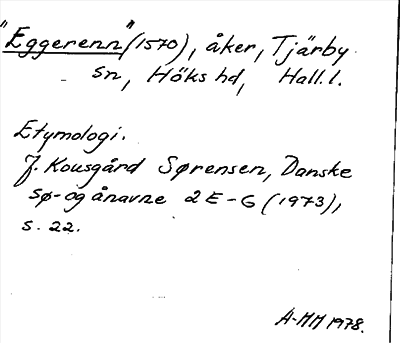 "Eggerenn" (1570), åker, Tjärby
sn, Höks hd, Hall. l.
Etymologi.
J. Kousgård Sørensen, Danske
sø- og ånavne 2 E-G (1973),
s. 22.
A-MM 1978.